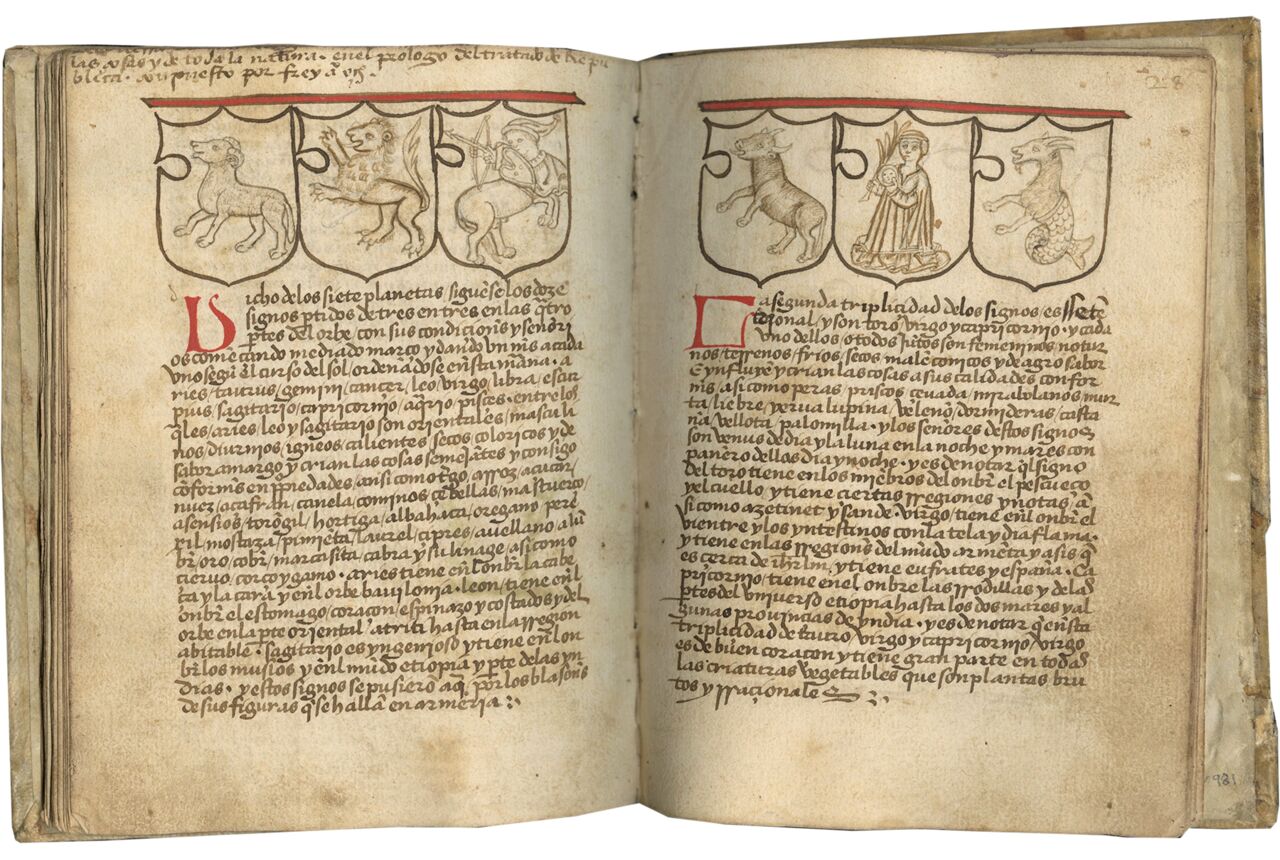 las cosas y de toda la natura · en el prologo del tratado de Re pu
blica · conpuesto por frey
Dicho de los siete planetas / siguẽse los doze
signos ptidos de tres en tres en las q̃tro
ptes del orbe / con sus condicionˢs y señori
os comẽcando mediado março y dando vn mˢs a cada
vno segũ el curso del sol / ordenãdose en esta mañana · a
ries / taurus / gemini / cancer / leo / virgo / libra / escor
pius / sagitario / capricornio / aq̃rio / pisces · entre los
q̃les / aries / leo y sagitario son orientales / masculi
nos / diurnios / igneos / calientes / secos / coloricos y de
sabor amargo y crian las cosas semejãtes y consigo
cõformˢs en ppiedades / ansi como trigo / arroz / açucar
nuez / açafran / canela / cominos / çebollas / mastuerço
asensios / torõgil / hortiga / albahaca / oregano / pere
xil / mostaza / pimiẽta / laurel / çipres / auellano / alũ
br̃ / oro / cobr̃ / marcasita / cabra y su linage / asi como
ciervo / corço y gamo · aries tiene enl onbr̃ la cabe
ça y la cara / y enl orbe bauilonia · leon / tiene enl
onbr̃ el estomago / coraçon / espinazo y costados y del
orbe en la pte oriental / atriti hasta en la rregion
abitable · sagitario es yngenioso y tiene enl on
br̃ los muslos / y enl mũdo etiopia / y pte de las yn
dias · y estos signos se pusierõ aq̃ / por los blasonˢs
de sus figuras q̃ se hallã en armeria
28
La segunda triplicidad de los signos / es setẽ
trional / y son toro / virgo y capricornio · y cada
vno dellos / o todos jũtos son femeninos / notur
nos / terrenos / frios / secos / malẽconicos y de agro sabor
E ynfluyẽ y crian las cosas a sus calidades confor
mˢs / asi como peras / priscos / çeuada / mirabolanos / mur
ta / liebre / yerua lupina / velenõ / dormideras / casta
ña / vellota / palomilla · y los señores destos signos
son venus de dia / y la luna en la noche / y mares con
panero dellos dia y noche · y es de notar q̃l signo
del toro tiene en los miẽbros del onbr̃ el pescueço
y el cuello / y tiene ciertas rregiones ynotas / a
si como azetinet y sande · virgo / tiene enl onbr̃ el
vientre y los yntestinos con la tela y diaflama ·
y tiene en las rregionˢs del mũdo armeta y asis q̃
es cerca de ihrlm / y tiene eufrates y españa · Ca
pricornio / tiene en el onbre las rrodillas / y de las
ptes del vniverso etiopia hasta los dos mares / y al
gunas prouincias de yndia · y es de notar q̃ en esta
triplicidad de tauro / virgo y capricornio / virgo
es de buen coraçon y tiene gran parte en todas
las criaturas vegetables que son plantas bru
tos y rracionale
981